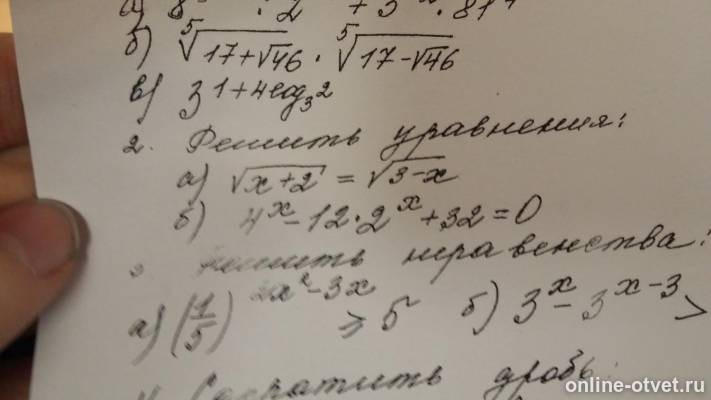 б) ⁵√(17+√46) · ⁵√(17-√46)
в) 3^(1+4log₃2)
2. Решить уравнения:
а) √(x+2) = √(3-x)
б) 4^x - 12·2^x + 32 = 0
Решить неравенства:
а) (1/5)^(2x²-3x) ≥ 5 б) 3^x - 3^(x-3) >
Сократить дробь:
online-otvet.ru